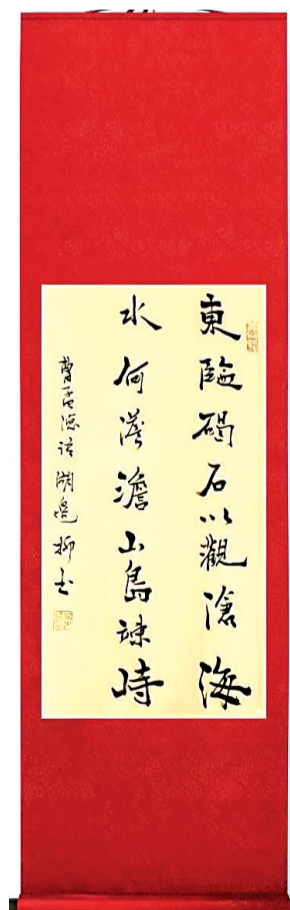 東臨碣石以觀滄海
水何澹澹山島竦峙
曹孟德诗湖邊柳书